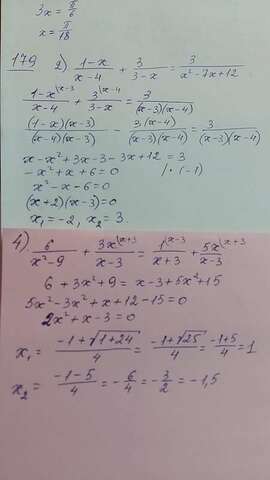 3x = π/6
x = π/18
179 2) (1-x)/(x-4) + 3/(3-x) = 3/(x²-7x+12)
(1-x)^(\x-3)/(x-4) + 3^(\x-4)/(3-x) = 3/((x-3)(x-4))
((1-x)(x-3))/((x-4)(x-3)) - (3(x-4))/((x-3)(x-4)) = 3/((x-3)(x-4))
x-x²+3x-3-3x+12=3
-x²+x+6=0 /·(-1)
x²-x-6=0
(x+2)(x-3)=0
x₁=-2, x₂=3.
4) 6/(x²-9) + 3x^(\x+3)/(x-3) = 1^(\x-3)/(x+3) + 5x^(\x+3)/(x-3)
6+3x²+9=x-3+5x²+15
5x²-3x²+x+12-15=0
2x²+x-3=0
x₁ = (-1+√(1+24))/4 = (-1+√25)/4 = (-1+5)/4 = 1
x₂ = (-1-5)/4 = -6/4 = -3/2 = -1,5